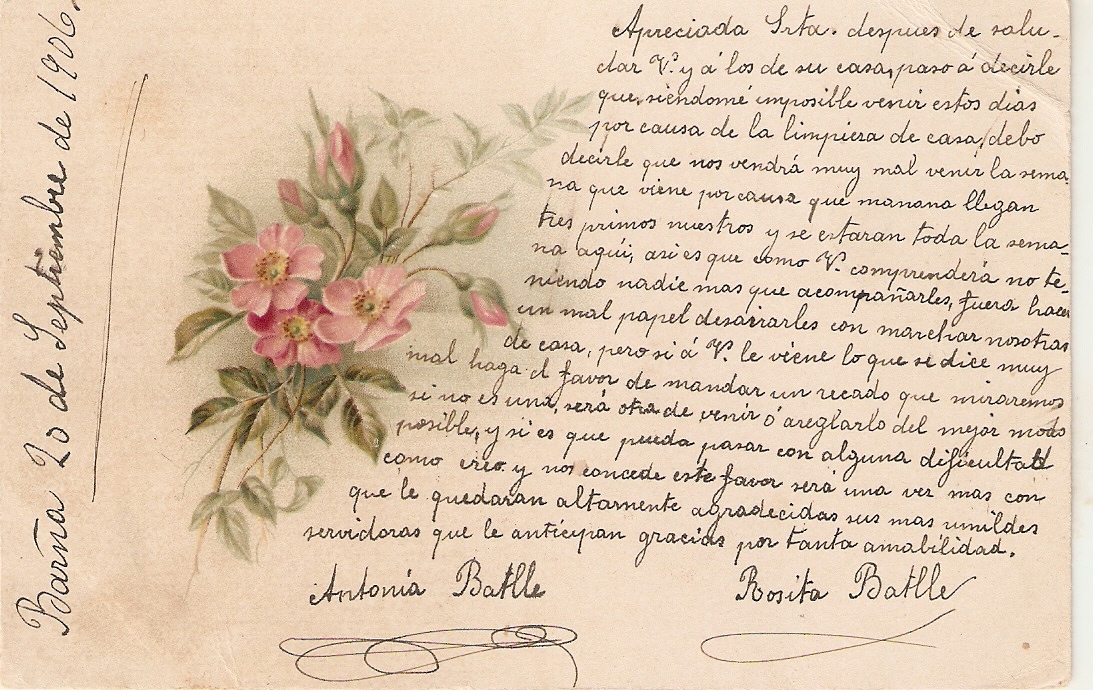 Barña 20 de Septiembre de 1906.
Apreciada Srta. despues de salu-
dar V. y á los de su casa, paso á decirle
que, siendomé imposible venir estos dias
por causa de la limpiesa de casa, debo
decirle que nos vendrá muy mal venir la sema-
na que viene por causa que manana llegan
tres primos nuestros y se estaran toda la sema-
na aqúi, asi es que como V. comprenderá no te-
niendo nadie mas que acompañarles, fuera hacer
un mal papel desairarles con marchar nosotras
de casa, pero si á V. le viene lo que se dice muy
mal haga el favor de mandar un recado que miraremos
si no es una, será otra de venir ó areglarlo del mejor modo
posible, y si es que pueda pasar con alguna dificultad
como creo y nos concede este favor será una ver mas con
que le quedaran altamente agradecidas sus mas umildes
servidoras que le anticipan gracias por tanta amabilidad.
Antonia Batlle Rosita Batlle